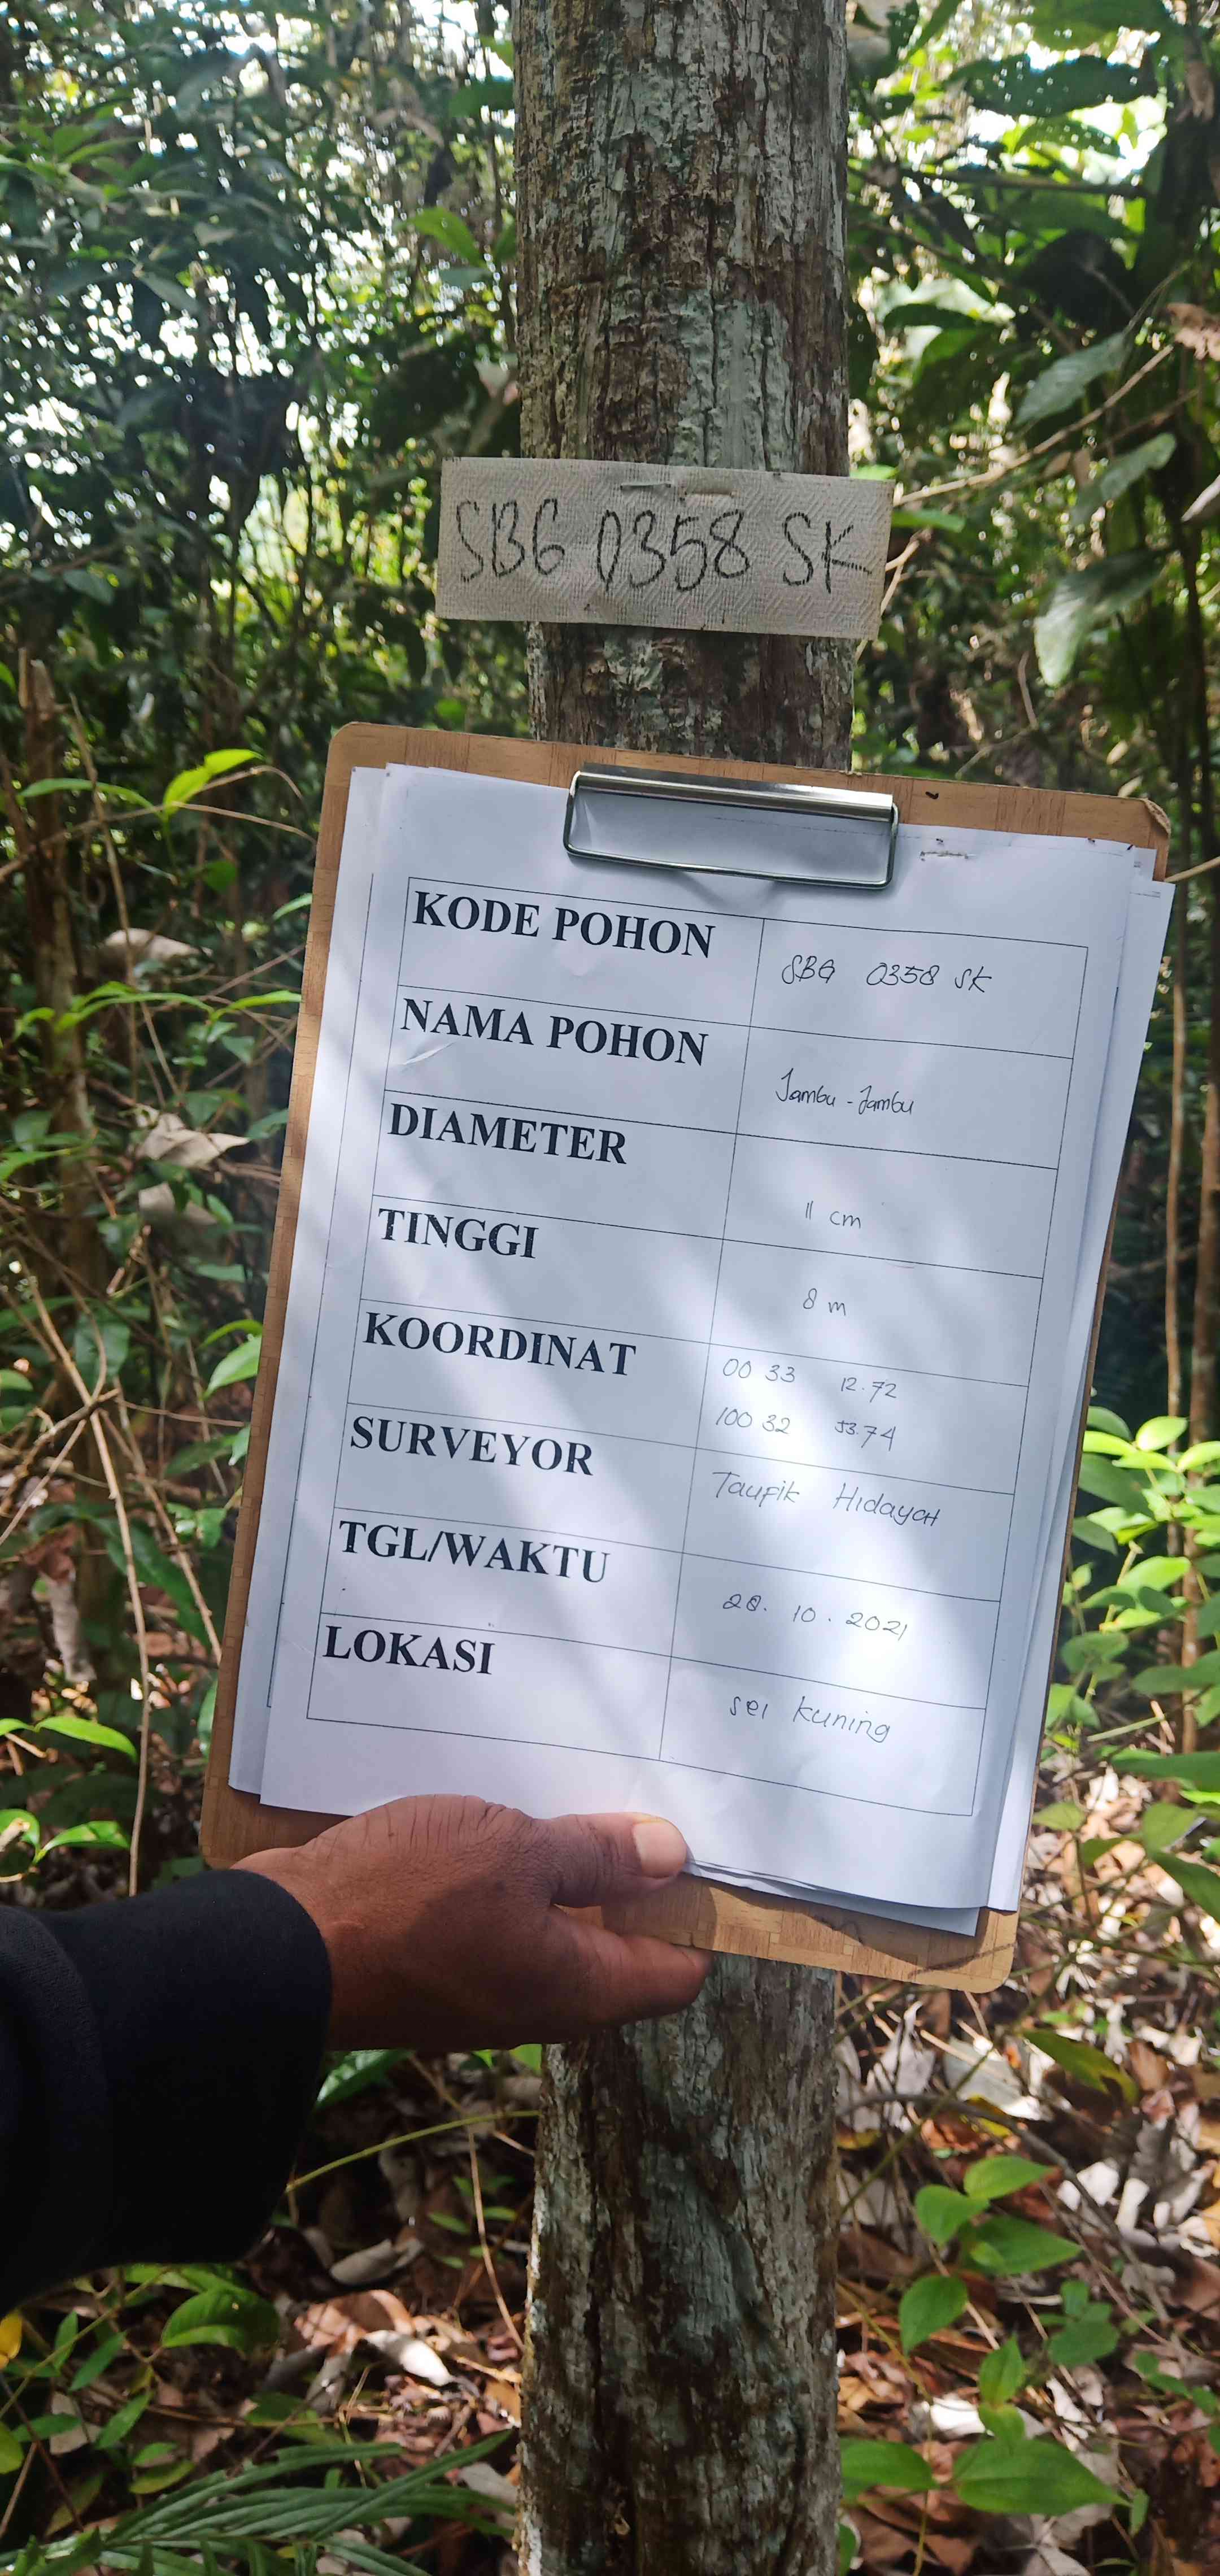 SBG 0358 SK
KODE POHON SBG 0358 SK
NAMA POHON Jambu-Jambu
DIAMETER 11 cm
TINGGI 8 m
KOORDINAT 00 33 12.72
100 32 53.74
SURVEYOR Taufik Hidayat
TGL/WAKTU 28.10.2021
LOKASI sei kuning